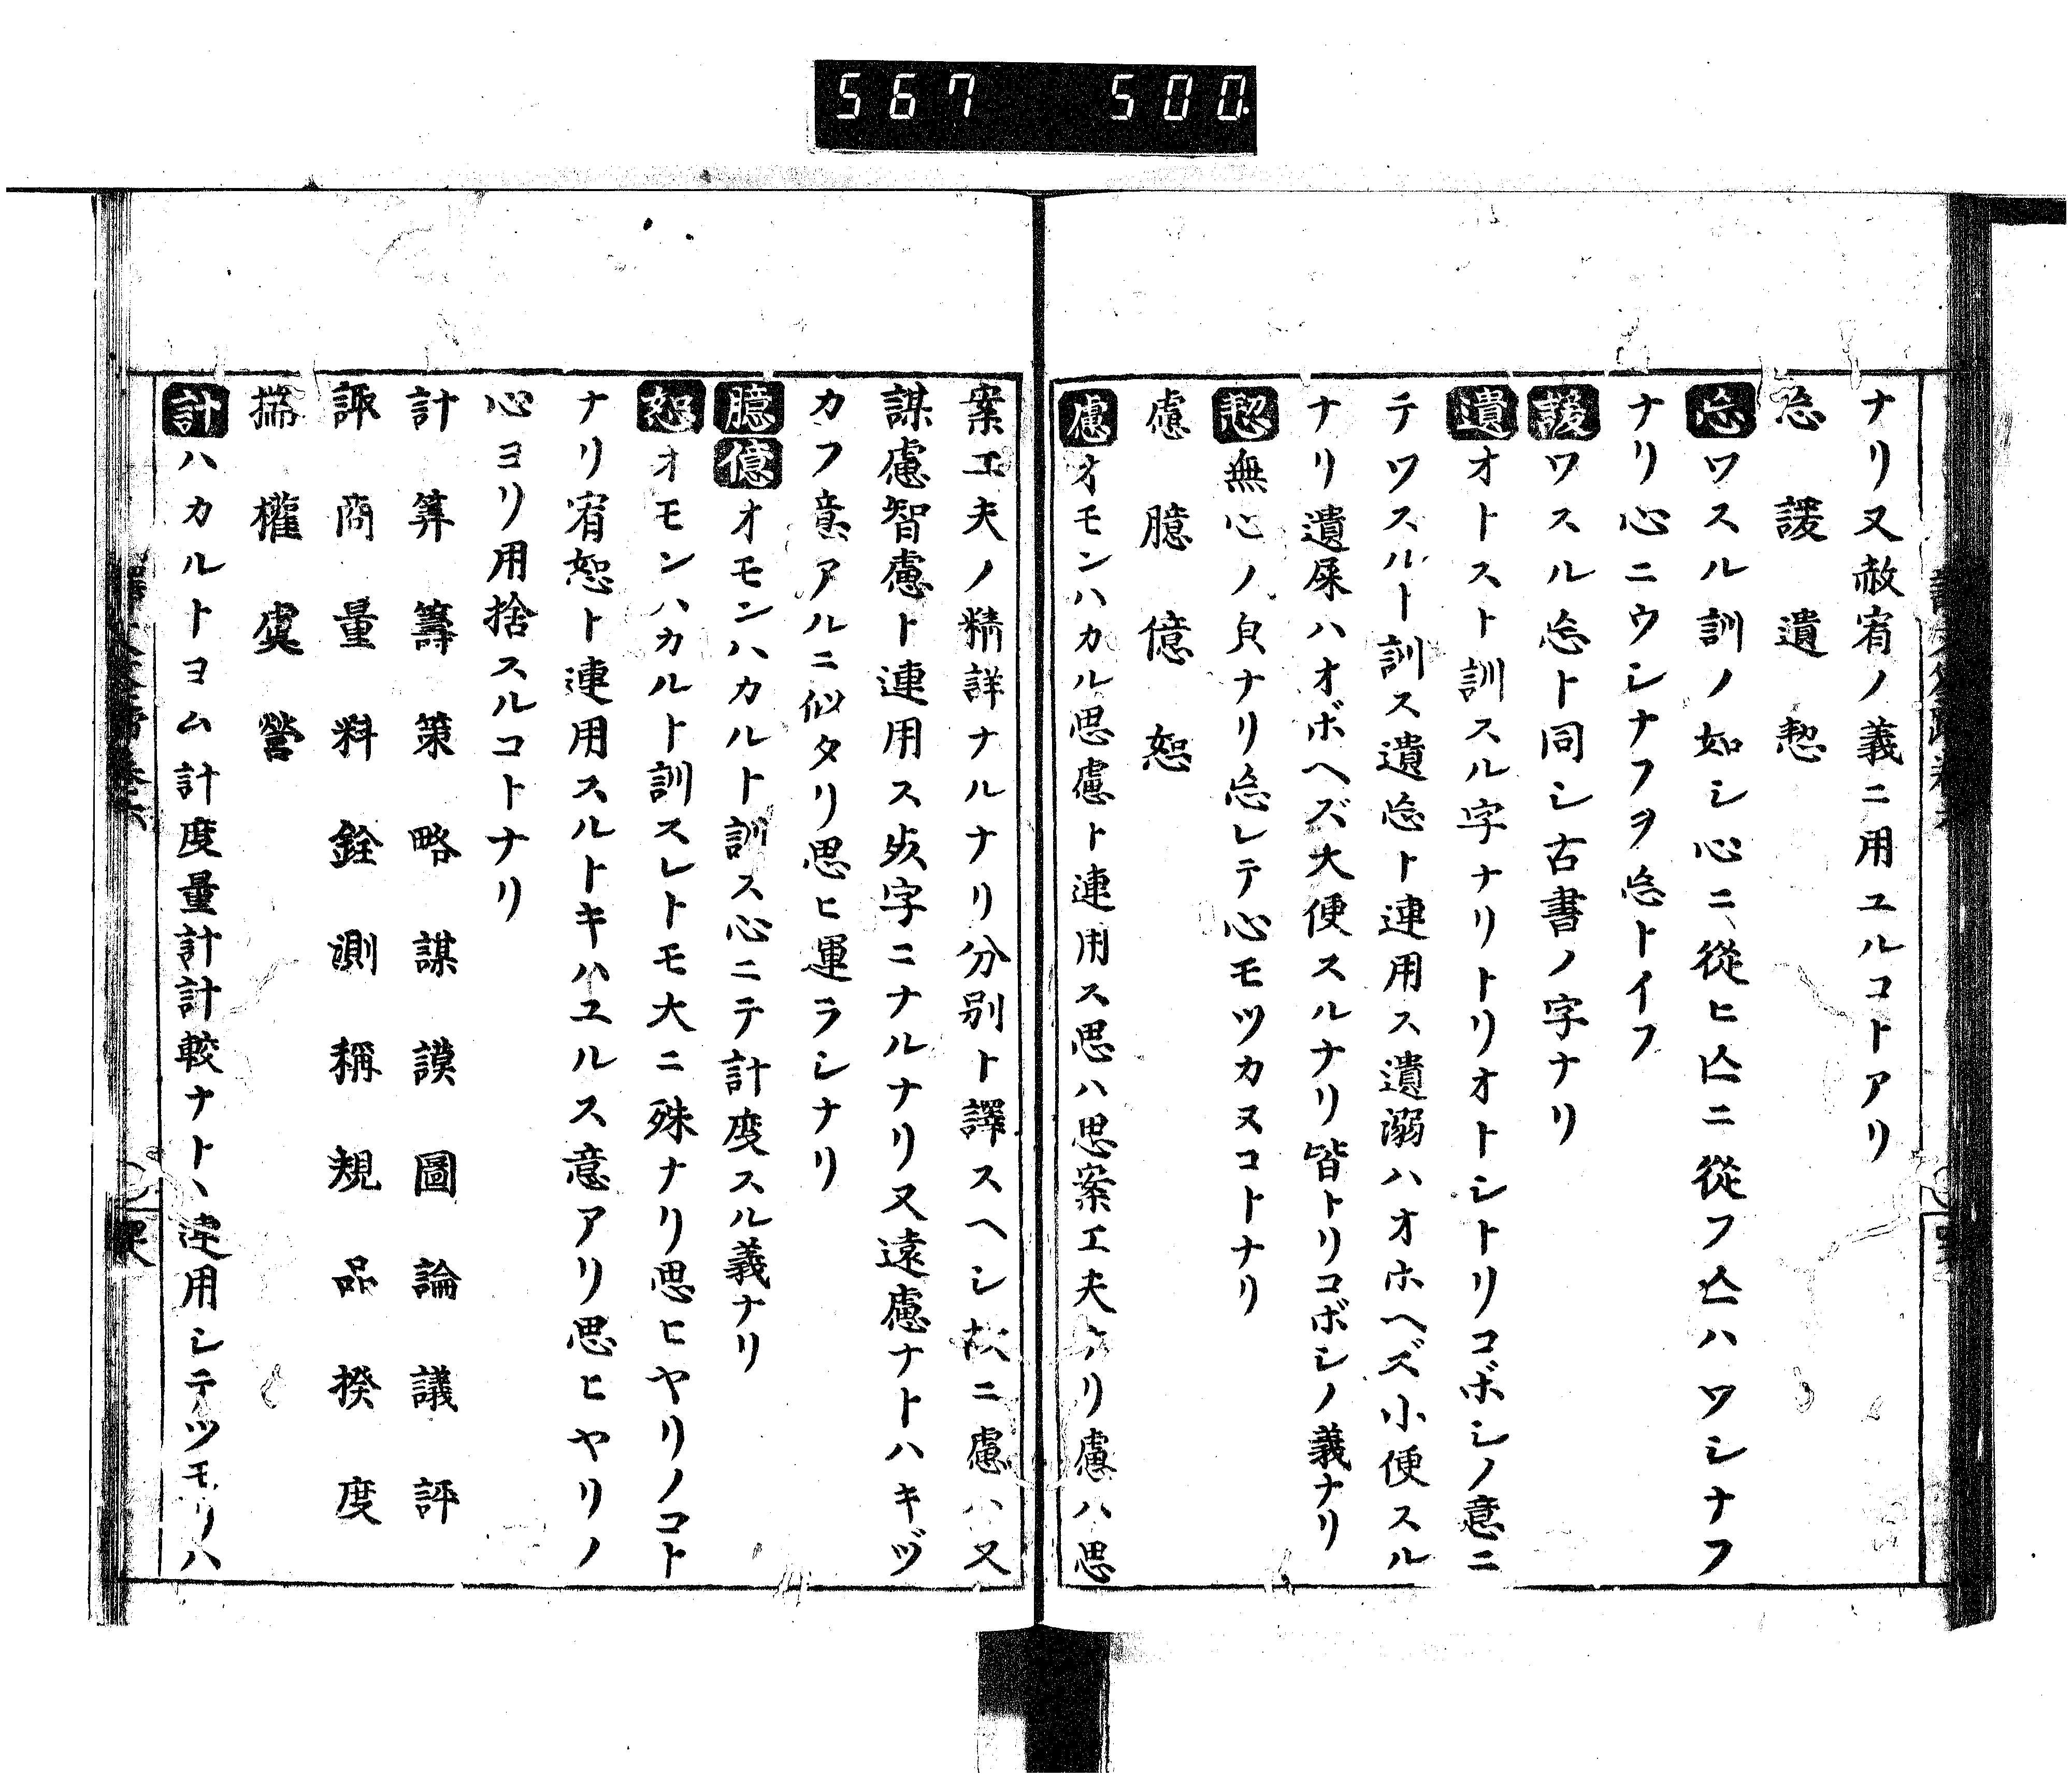 567 500
ナリ又赦宥ノ義ニ用ユルコトアリ
忘 諼 遺 恝
忘ワスル訓ノ如シ心ニ從ヒ亾ニ從フ亾ハワシナフ
ナリ心ニウシナフヲ忘トイフ
諼ワスル忘ト同シ古書ノ字ナリ
遺オトスト訓スル字ナリトリオトシトリコボシノ意ニ
テワスルト訓ス遺忘ト連用ス遺溺ハオホヘズ小便スル
ナリ遺屎ハオボヘズ大便スルナリ皆トリコボシノ義ナリ
恝無心ノ皃ナリ忘レテ心モツカヌコトナリ
慮 臆 億 恕
慮オモンハカル思慮ト連用ス思ハ思案工夫ナリ慮ハ思
案工夫ノ精詳ナルナリ分别ト譯スヘシ故ニ慮ハ又
謀慮智慮ト連用ス㕝字ニナルナリ又遠慮ナトハキヅ
カフ意アルニ似タリ思ヒ運ラシナリ
臆億オモンハカルト訓ス心ニテ計度スル義ナリ
恕オモンハカルト訓スレトモ大ニ殊ナリ思ヒヤリノコト
ナリ宥恕ト連用スルトキハユルス意アリ思ヒヤリノ
心ヨリ用捨スルコトナリ
計 筭 籌 策 略 謀 謨 圖 論 議 評
諏 商 量 料 銓 測 稱 規 品 揆 度
揣 權 虞 營
計ハカルトヨム計度量計計較ナトヽ連用シテツモリハ